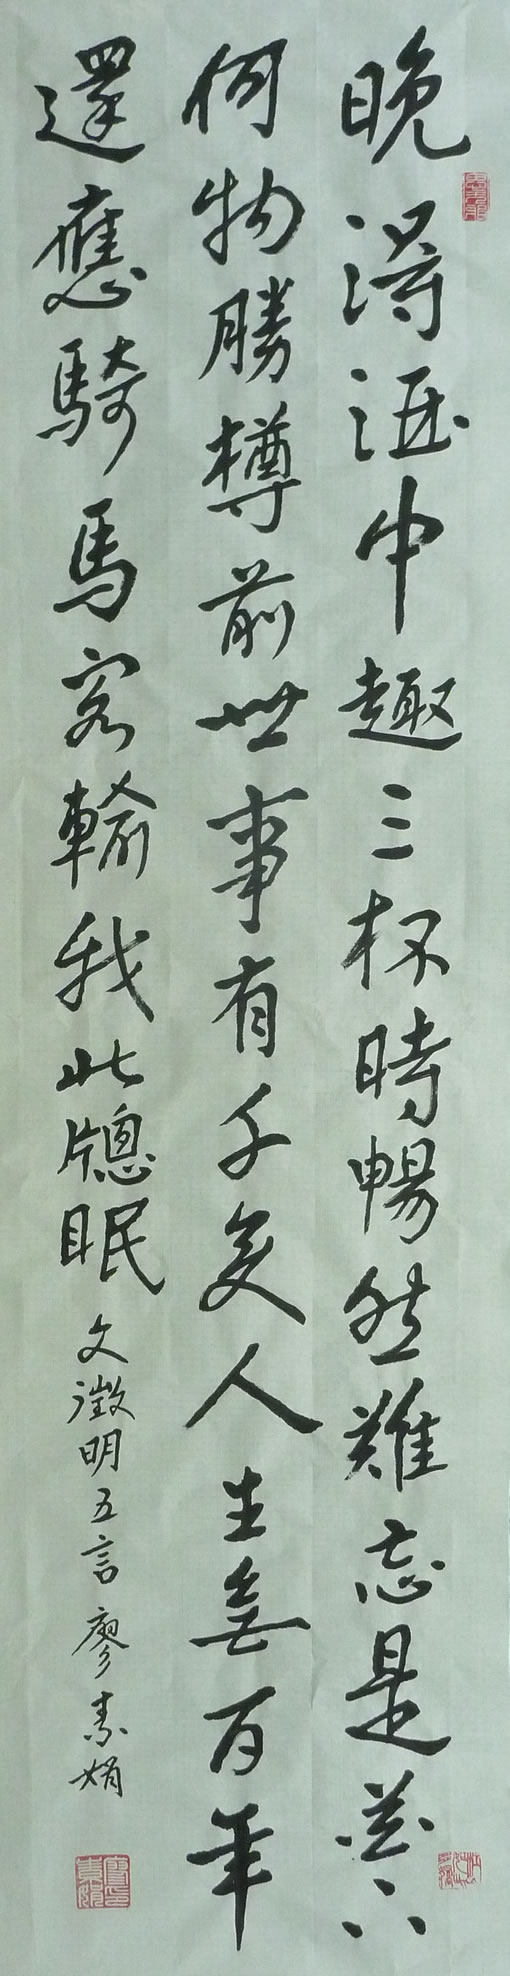 晚得酒中趣三杯時暢然難忘是花下
何物勝樽前世事有千變人生無百年
還應騎馬客輸我此牕眠
文徵明五言 廖素娟